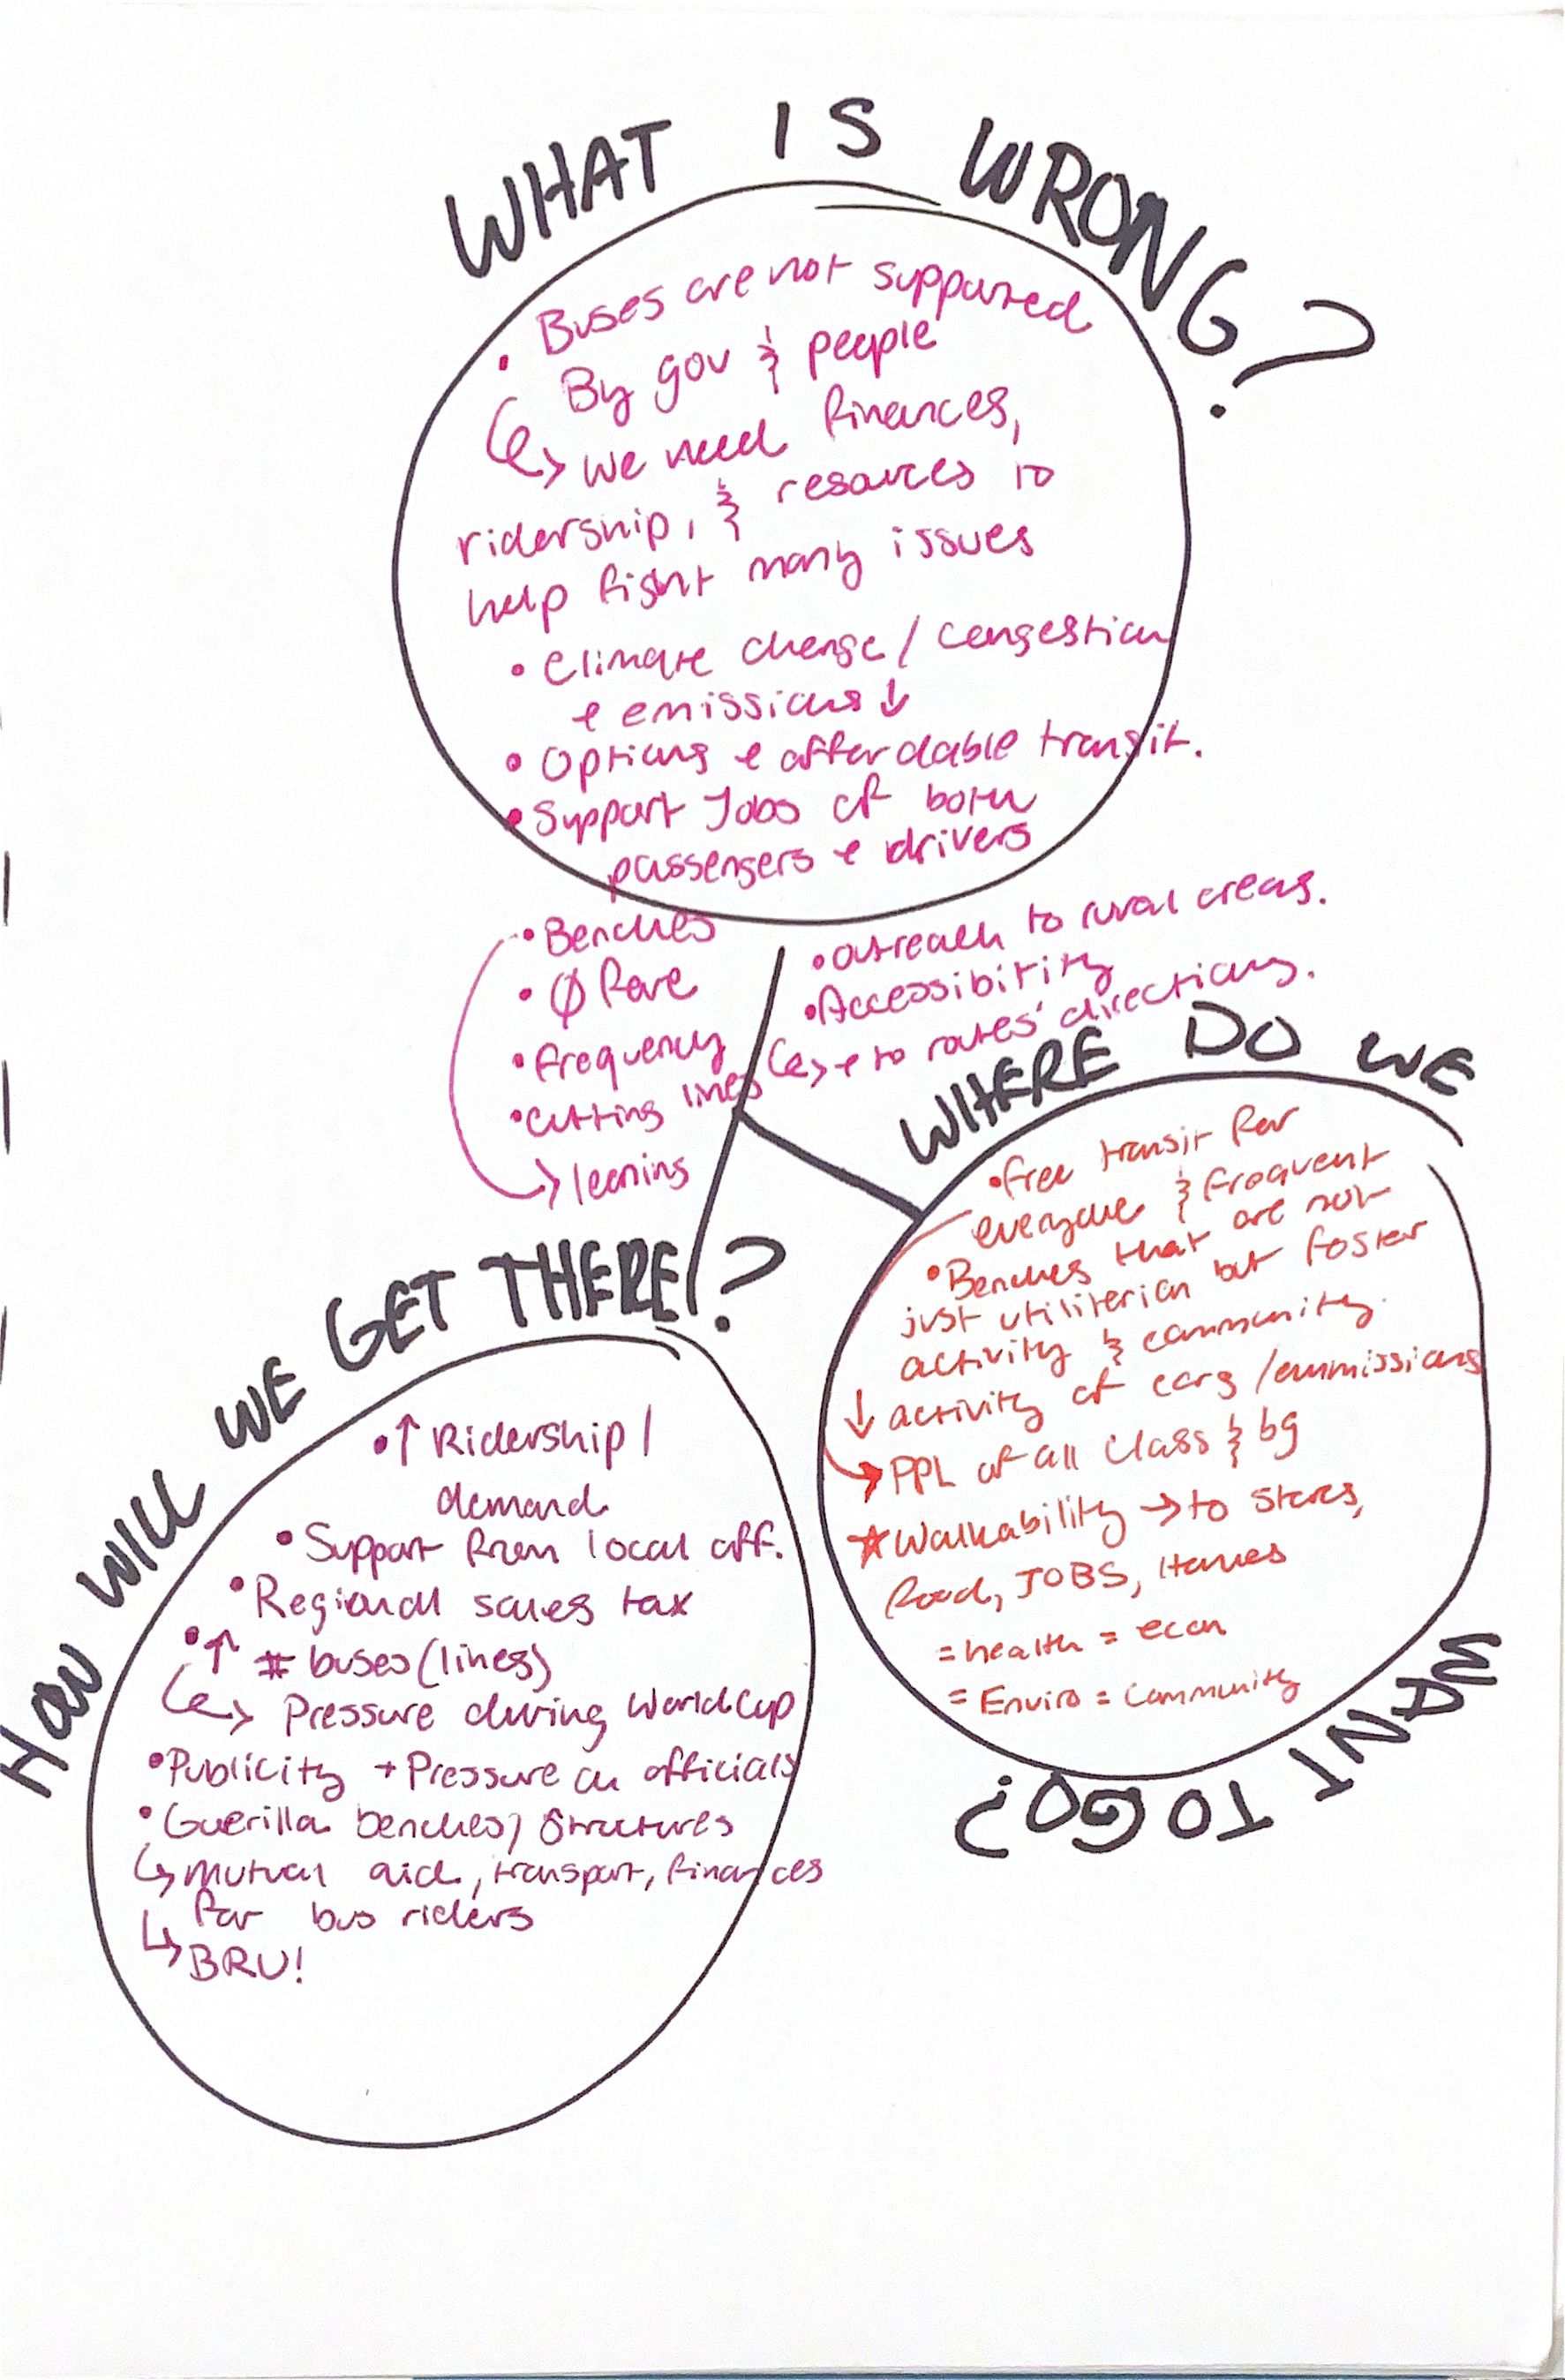 WHAT IS WRONG?
• Buses are not supported
By gov & people
↳ we need finances,
ridership, & resources to
help fight many issues
• Climate change / congestion
+ emissions ↓
• Options + affordable transit.
• Support Jobs of both
passengers + drivers
• Benches
• Ø fare
• frequency
• Cutting lines
→ leaning
• Outreach to rural areas.
• Accessibility
↳ + to routes' directions.
WHERE DO WE
WANT TO GO?
• free transit for
everyone & frequent
• Benches that are not
just utiliterian but foster
activity & community.
↓ activity of cars / emmissions
→ PPL of all class & bg
★ Walkability → to stores,
food, JOBS, Homes
= health = econ
= Enviro = Community
HOW WILL WE GET THERE?
• ↑ Ridership /
demand
• Support from local off.
• Regional sales tax
• ↑ # buses (lines)
↳ Pressure during World Cup
• Publicity + Pressure on officials
• Guerilla benches / Structures
↳ mutual aid, transport, finances
for bus riders
↳ BRU!